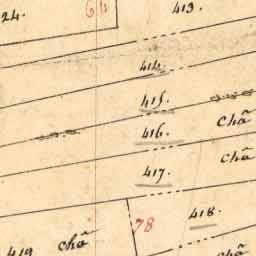 24.
64
413.
414.
415.
416.
Châ
417.
Châ
78
418.
419
Châ
Châ